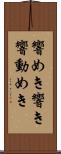 響めき響き
響動めき